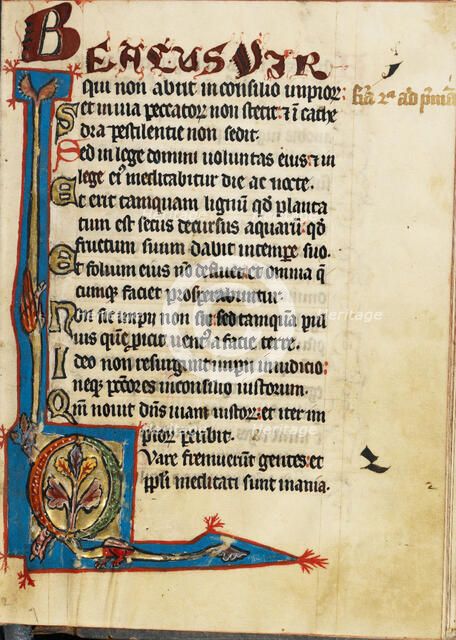 BEATUS VIR
qui non abiit in consilio impior:
et in uia peccator non stetit: et in cathe
dra pestilentie non sedit.
Sed in lege domini uoluntas eius: et in
lege ei' meditabitur die ac nocte.
Et erit tamquam lignum qd planta
tum est secus decursus aquarum: qd
fructum suum dabit in tempore suo.
Et folium eius no defluet: et omnia q
cumque faciet prosperabuntur.
Non sic impii non sic: sed tamquam pul
uis quem proicit uentus a facie terre.
Ideo non resurgunt impii in iudicio:
neque peccatores in consilio iustorum.
Qm nouit dns uiam iustor: et iter im
pior peribit.
Quare fremuerunt gentes: et
ppli meditati sunt inania.
Heritage
Heritage